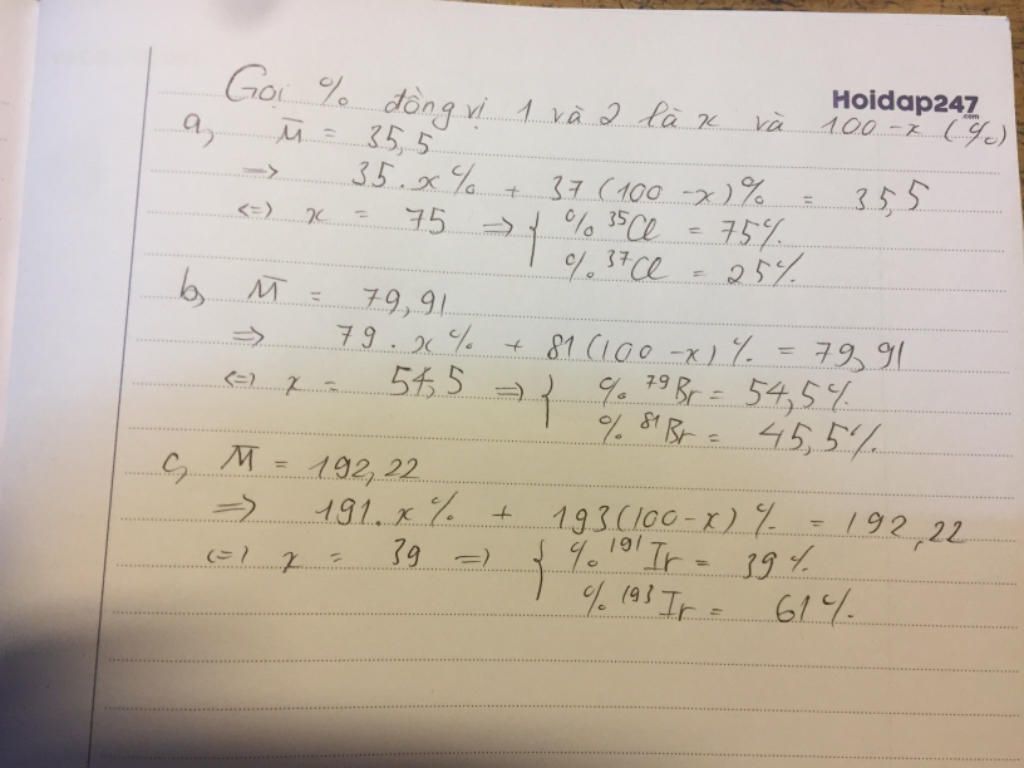 Gọi % đồng vị 1 và 2 là x và 100 - x (%)
Hoidap247
.com
a, M̅ = 35,5
=> 35.x% + 37(100 - x)% = 35,5
<=> x = 75 => { % ³⁵Cl = 75%
% ³⁷Cl = 25%
b, M̅ = 79,91
=> 79.x% + 81(100 - x)% = 79,91
<=> x = 54,5 => { % ⁷⁹Br = 54,5%
% ⁸¹Br = 45,5%
c, M̅ = 192,22
=> 191.x% + 193(100 - x)% = 192,22
<=> x = 39 => { % ¹⁹¹Ir = 39%
% ¹⁹³Ir = 61%